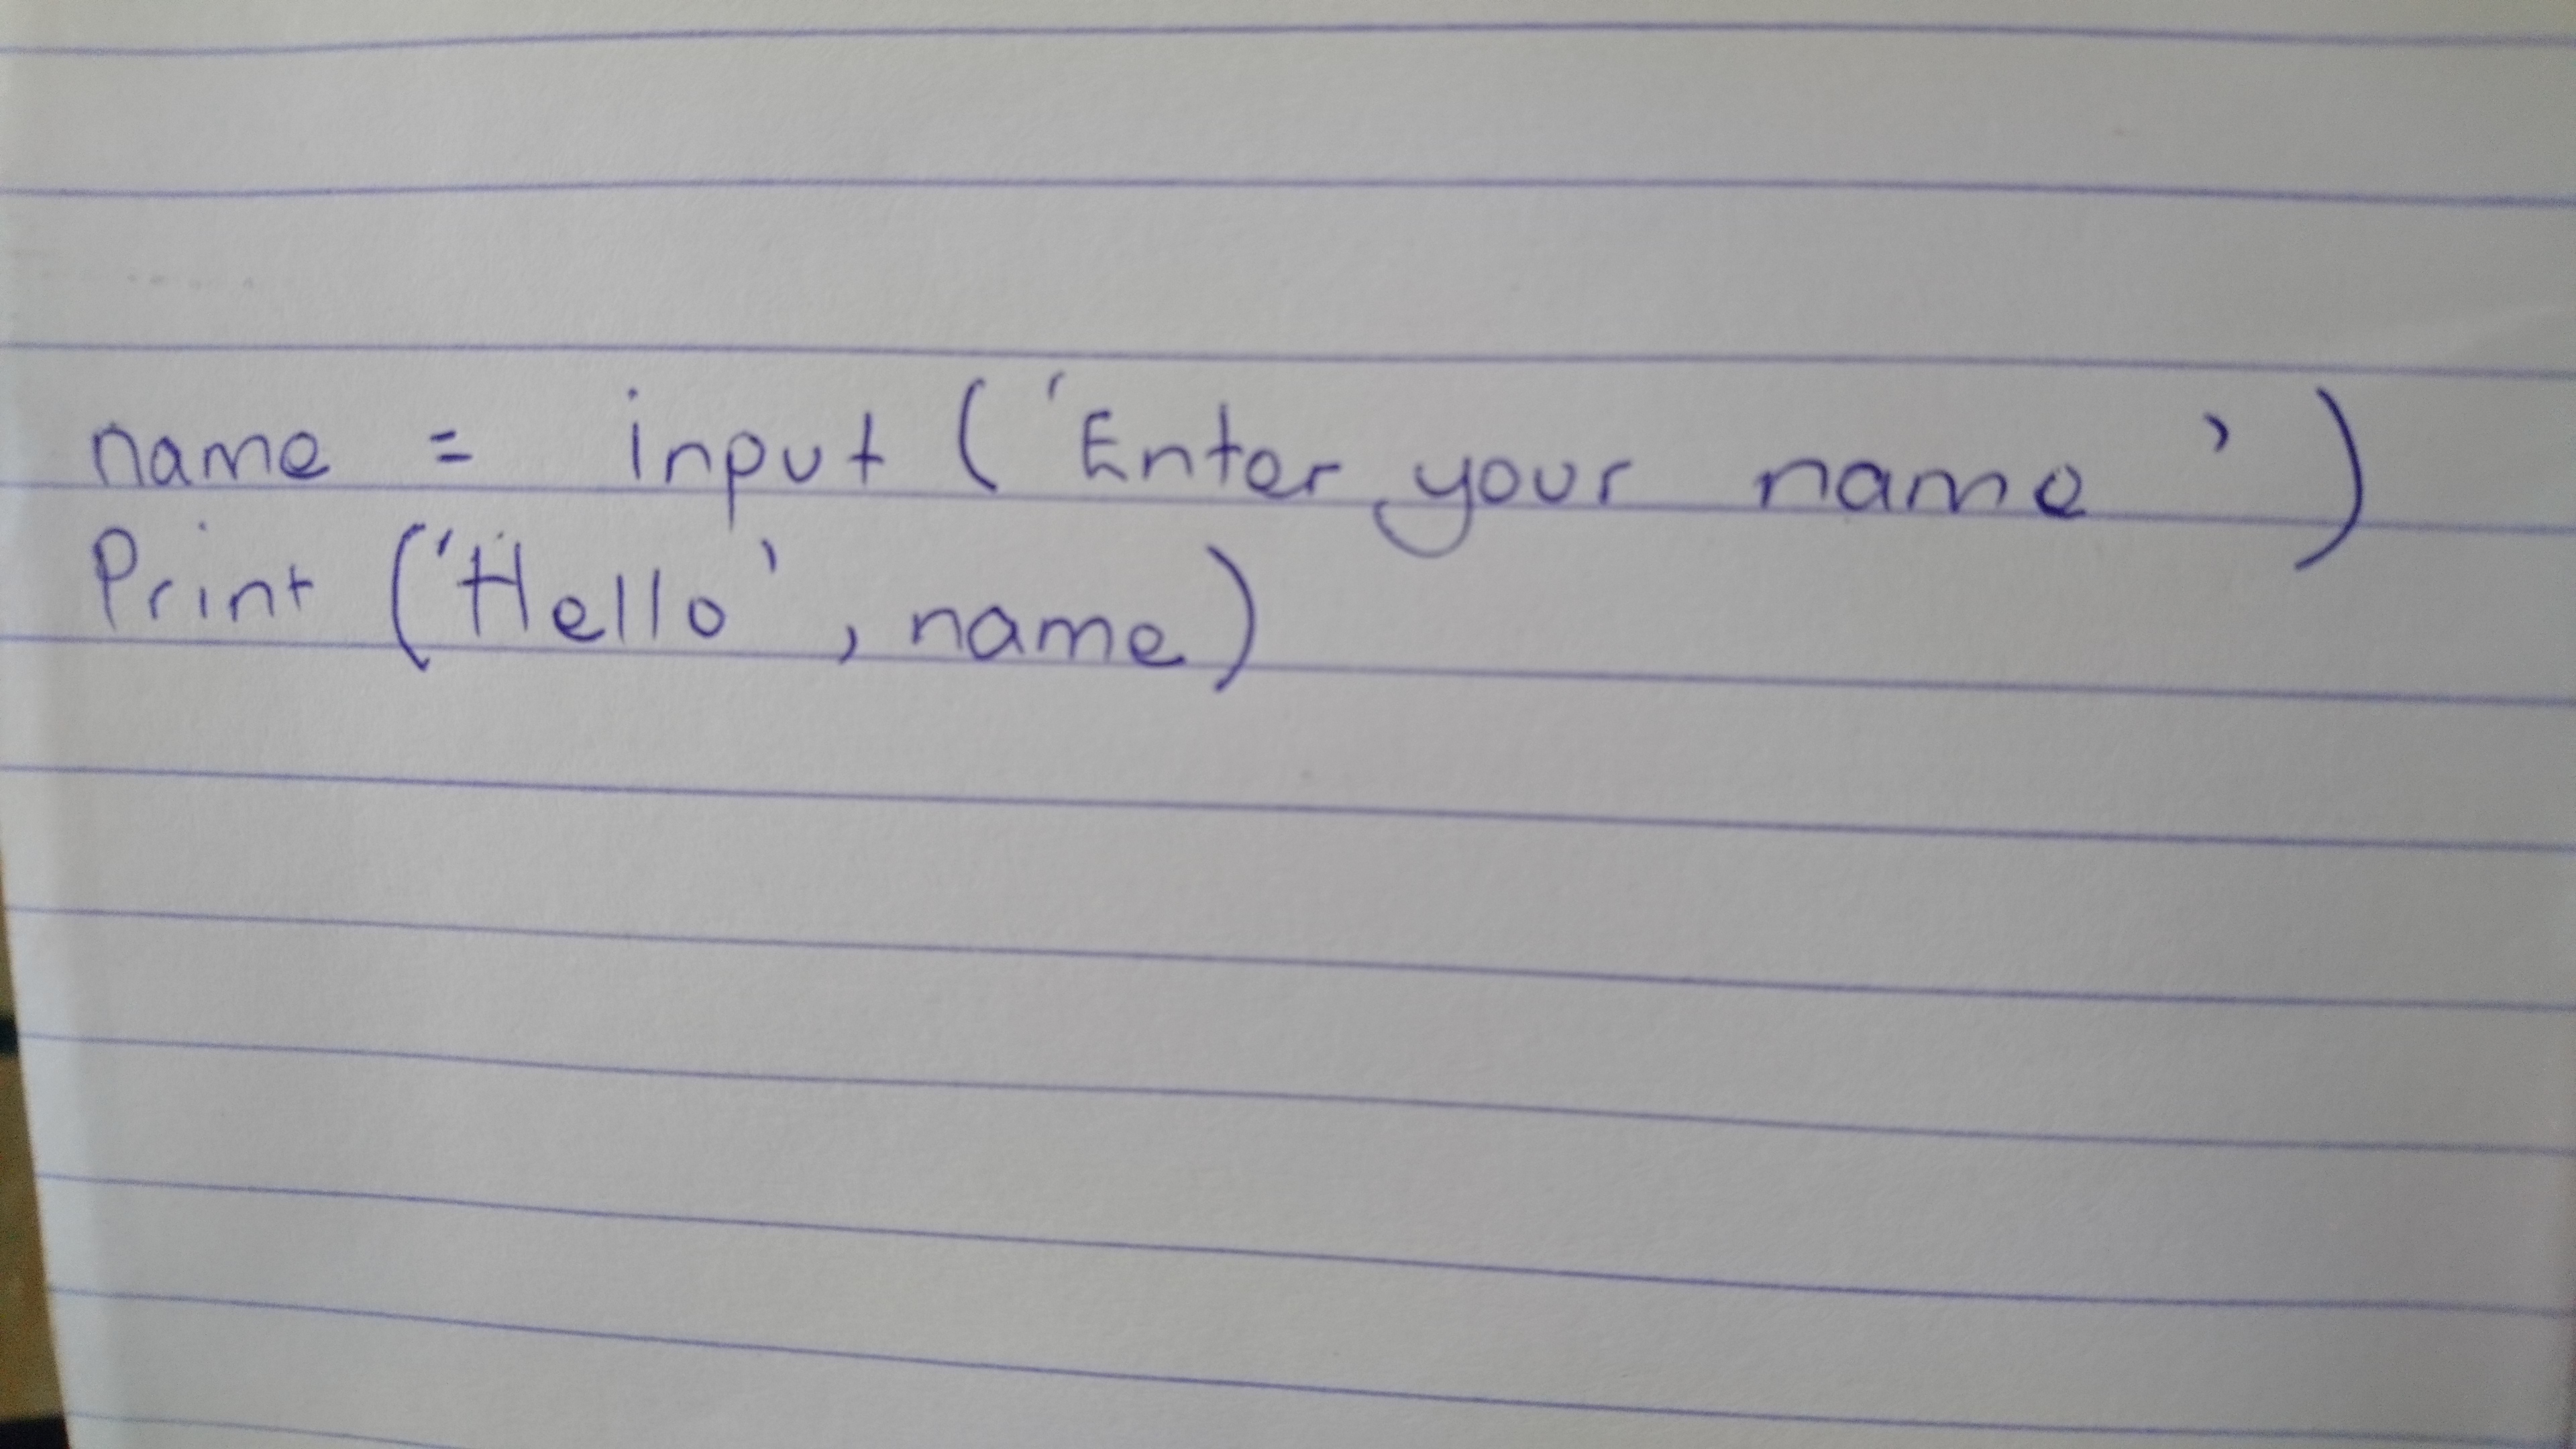 name = input ('Enter your name ')
Print ('Hello' , name)